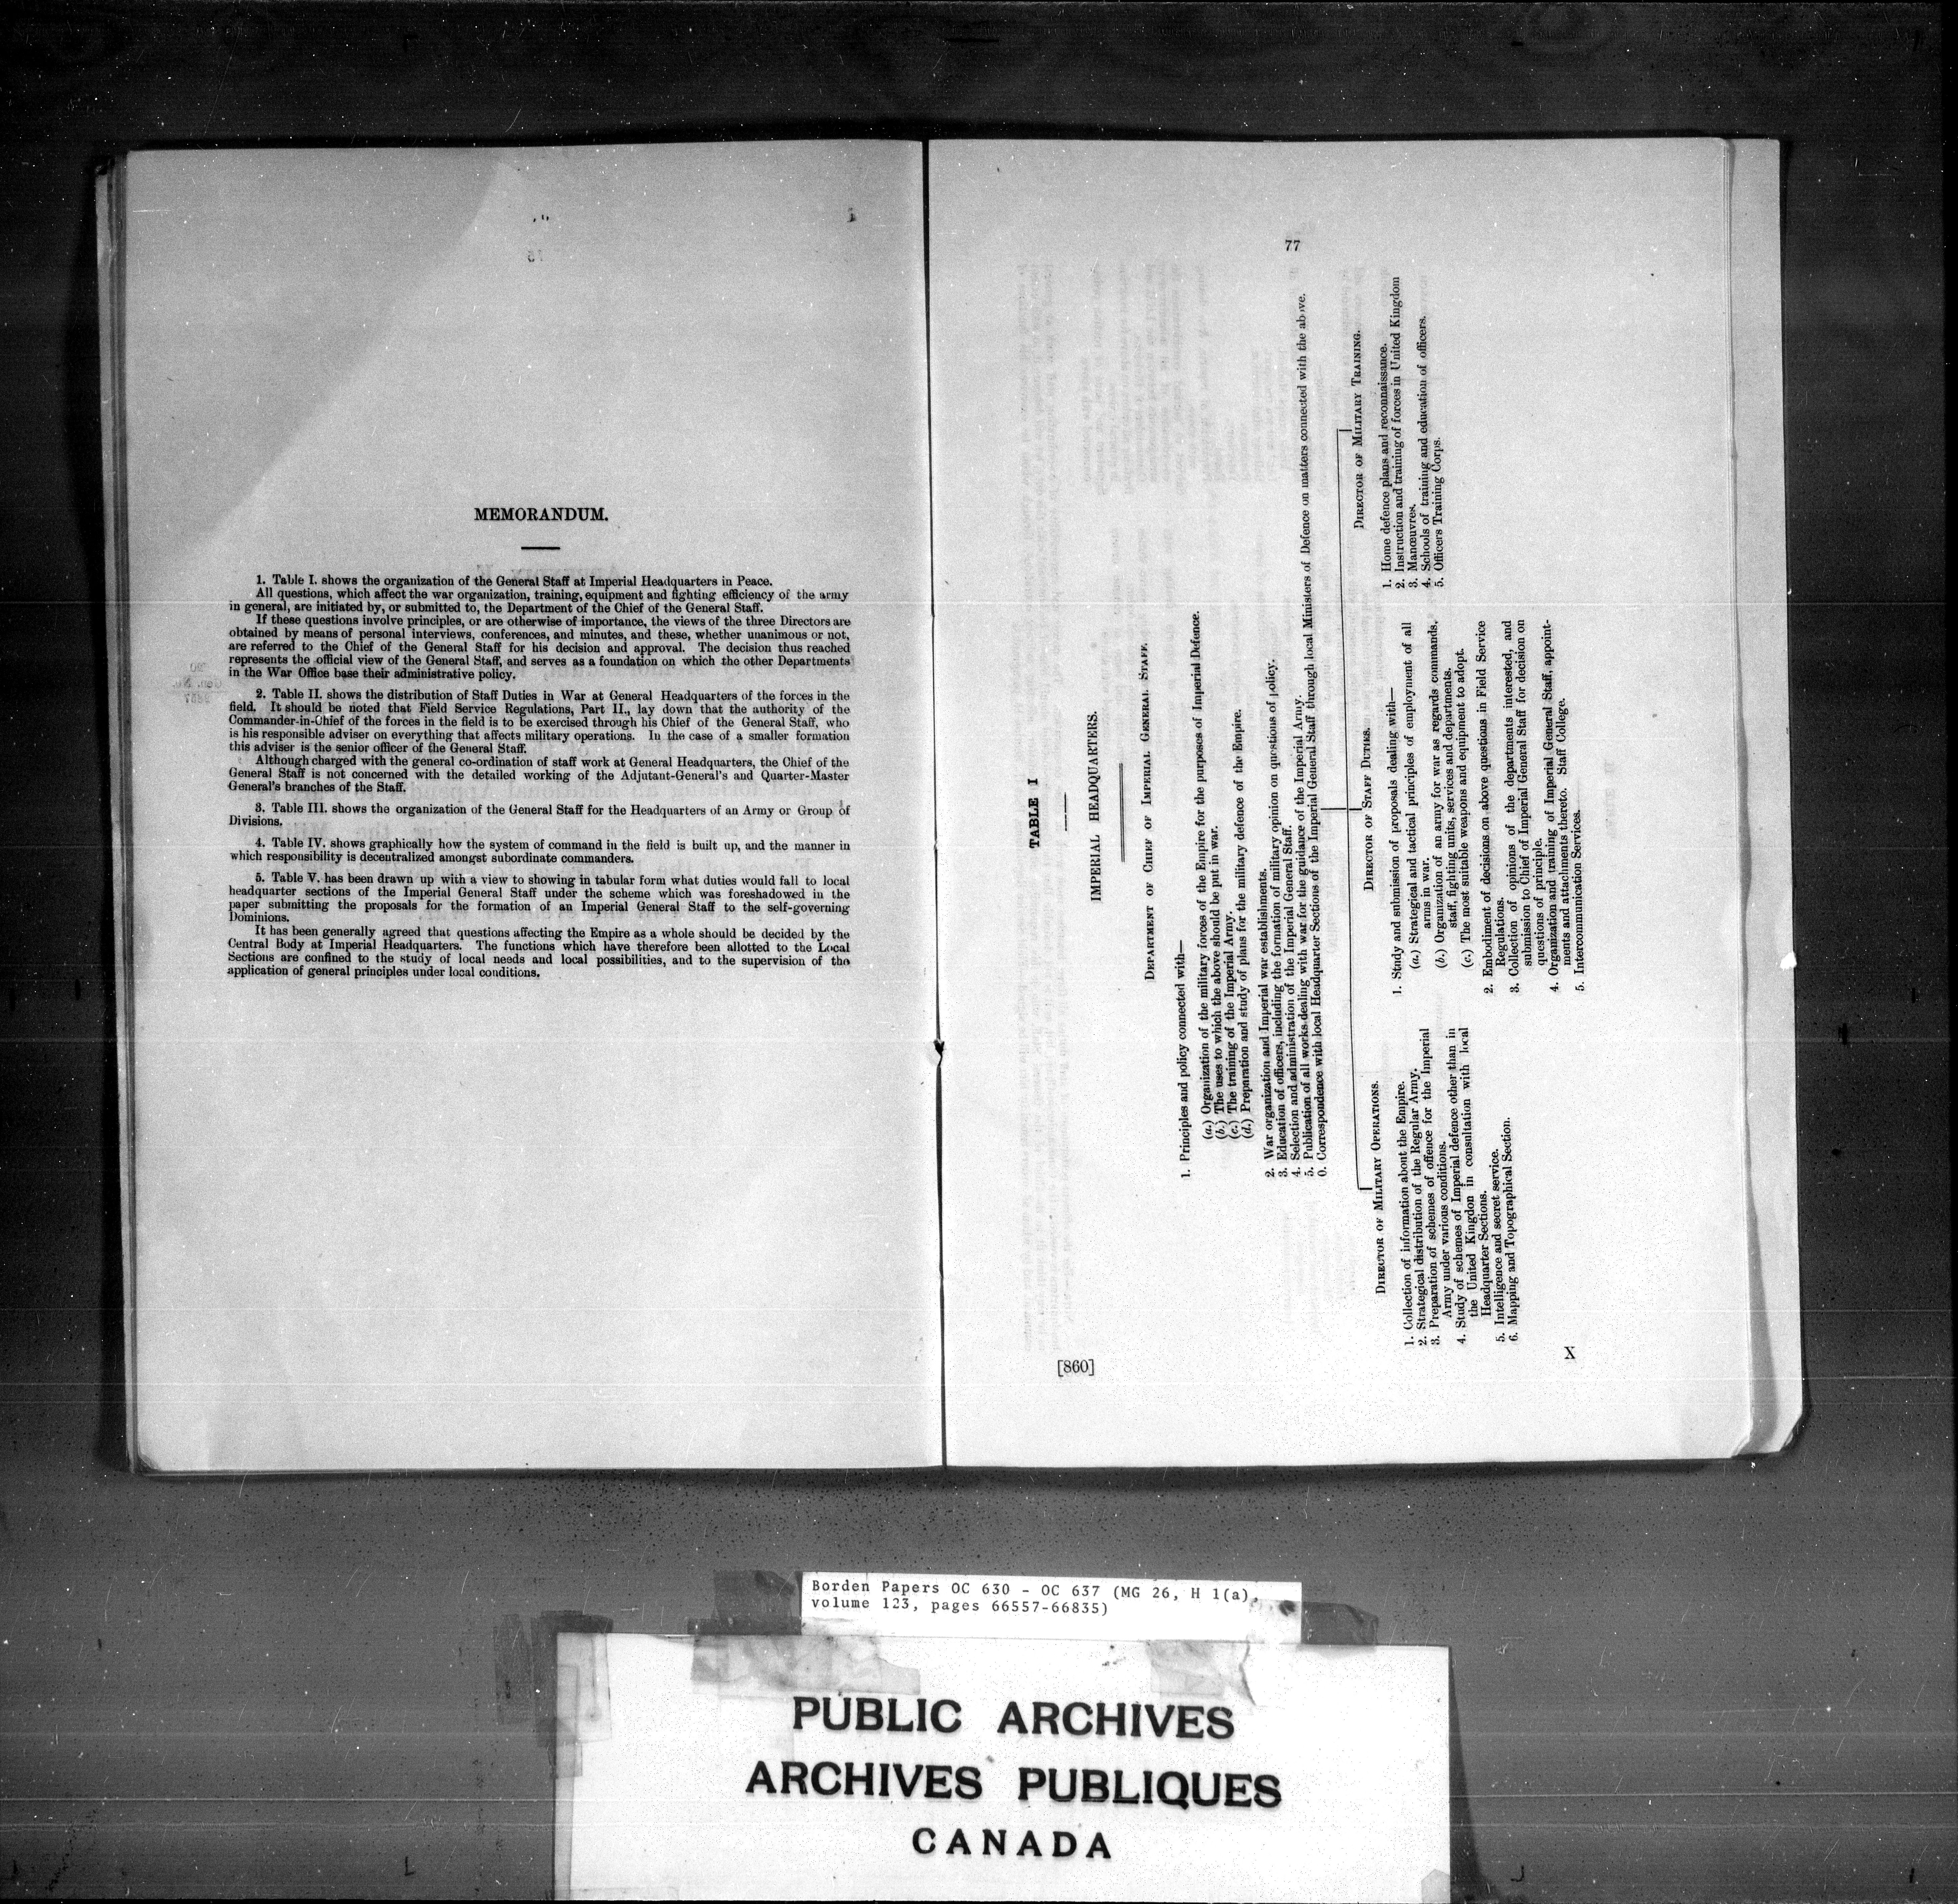 MEMORANDUM.
1. Table I. shows the organization of the General Staff at Imperial Headquarters in Peace.
All questions, which affect the war organization, training, equipment and fighting efficiency of the army
in general, are initiated by, or submitted to, the Department of the Chief of the General Staff.
If these questions involve principles, or are otherwise of importance, the views of the three Directors are
obtained by means of personal interviews, conferences, and minutes, and these, whether unanimous or not,
are referred to the Chief of the General Staff for his decision and approval. The decision thus reached
represents the official view of the General Staff, and serves as a foundation on which the other Departments
in the War Office base their administrative policy.
2. Table II. shows the distribution of Staff Duties in War at General Headquarters of the forces in the
field. It should be noted that Field Service Regulations, Part II., lay down that the authority of the
Commander-in-Chief of the forces in the field is to be exercised through his Chief of the General Staff, who
is his responsible adviser on everything that affects military operations. In the case of a smaller formation
this adviser is the senior officer of the General Staff.
Although charged with the general co-ordination of staff work at General Headquarters, the Chief of the
General Staff is not concerned with the detailed working of the Adjutant-General's and Quarter-Master
General's branches of the Staff.
3. Table III. shows the organization of the General Staff for the Headquarters of an Army or Group of
Divisions.
4. Table IV. shows graphically how the system of command in the field is built up, and the manner in
which responsibility is decentralized amongst subordinate commanders.
5. Table V. has been drawn up with a view to showing in tabular form what duties would fall to local
headquarter sections of the Imperial General Staff under the scheme which was foreshadowed in the
paper submitting the proposals for the formation of an Imperial General Staff to the self-governing
Dominions.
It has been generally agreed that questions affecting the Empire as a whole should be decided by the
Central Body at Imperial Headquarters. The functions which have therefore been allotted to the Local
Sections are confined to the study of local needs and local possibilities, and to the supervision of the
application of general principles under local conditions.
77
TABLE I
IMPERIAL HEADQUARTERS.
DEPARTMENT OF CHIEF OF IMPERIAL GENERAL STAFF.
1. Principles and policy connected with—
(a.) Organization of the military forces of the Empire for the purposes of Imperial Defence.
(b.) The uses to which the above should be put in war.
(c.) The training of the Imperial Army.
(d.) Preparation and study of plans for the military defence of the Empire.
2. War organization and Imperial war establishments.
3. Education of officers, including the formation of military opinion on questions of policy.
4. Selection and administration of the Imperial General Staff.
5. Publication of all works dealing with war for the guidance of the Imperial Army.
6. Correspondence with local Headquarter Sections of the Imperial General Staff through local Ministers of Defence on matters connected with the above.
DIRECTOR OF MILITARY OPERATIONS.
1. Collection of information about the Empire.
2. Strategical distribution of the Regular Army.
3. Preparation of schemes of offence for the Imperial
Army under various conditions.
4. Study of schemes of Imperial defence other than in
the United Kingdom in consultation with local
Headquarter Sections.
5. Intelligence and secret service.
6. Mapping and Topographical Section.
DIRECTOR OF STAFF DUTIES.
1. Study and submission of proposals dealing with—
(a.) Strategical and tactical principles of employment of all
arms in war.
(b.) Organization of an army for war as regards commands,
staff, fighting units, services and departments.
(c.) The most suitable weapons and equipment to adopt.
2. Embodiment of decisions on above questions in Field Service
Regulations.
3. Collection of opinions of the departments interested, and
submission to Chief of Imperial General Staff for decision on
questions of principle.
4. Organization and training of Imperial General Staff, appoint-
ments and attachments thereto. Staff College.
5. Intercommunication Services.
DIRECTOR OF MILITARY TRAINING.
1. Home defence plans and reconnaissance.
2. Instruction and training of forces in United Kingdom
3. Manœuvres.
4. Schools of training and education of officers.
5. Officers Training Corps.
[860]
X
Borden Papers OC 630 - OC 637 (MG 26, H 1(a),
volume 123, pages 66557-66835)
PUBLIC ARCHIVES
ARCHIVES PUBLIQUES
CANADA